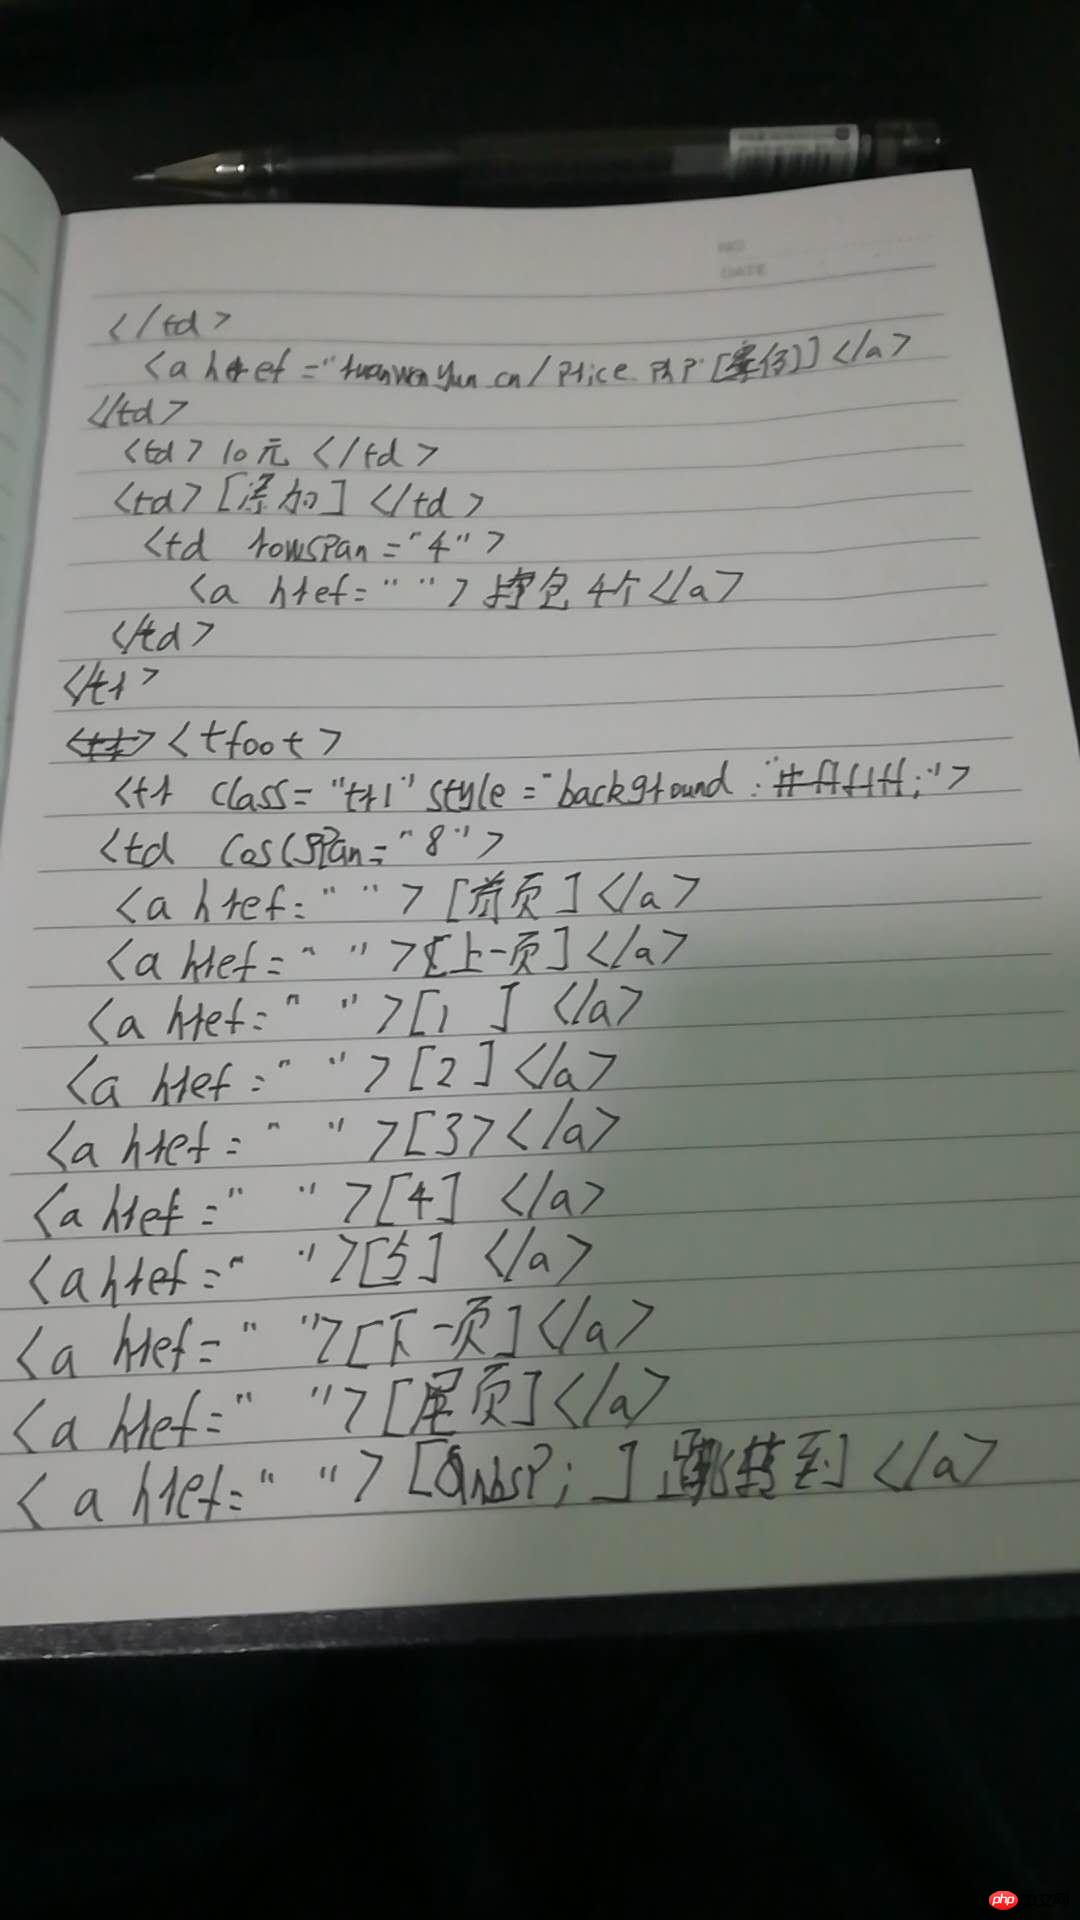 NO
DATE
</td>
<a href="tuanwenyun.cn/price.php" []</a>
</td>
<td>10元</td>
<td>[添加]</td>
<td rowspan="4">
<a href=" ">打包4个</a>
</td>
</tr>
<tfoot>
<tr class="tr1" style="background:"#ffffff;">
<td coscspan="8">
<a href=" ">[首页]</a>
<a href=" ">[上一页]</a>
<a href=" ">[1 ]</a>
<a href=" ">[2]</a>
<a href=" ">[3></a>
<a href=" ">[4]</a>
<a href=" ">[5]</a>
<a href=" ">[下一页]</a>
<a href=" ">[尾页]</a>
<a href=" ">[&nbsp;]跳转到</a>
php